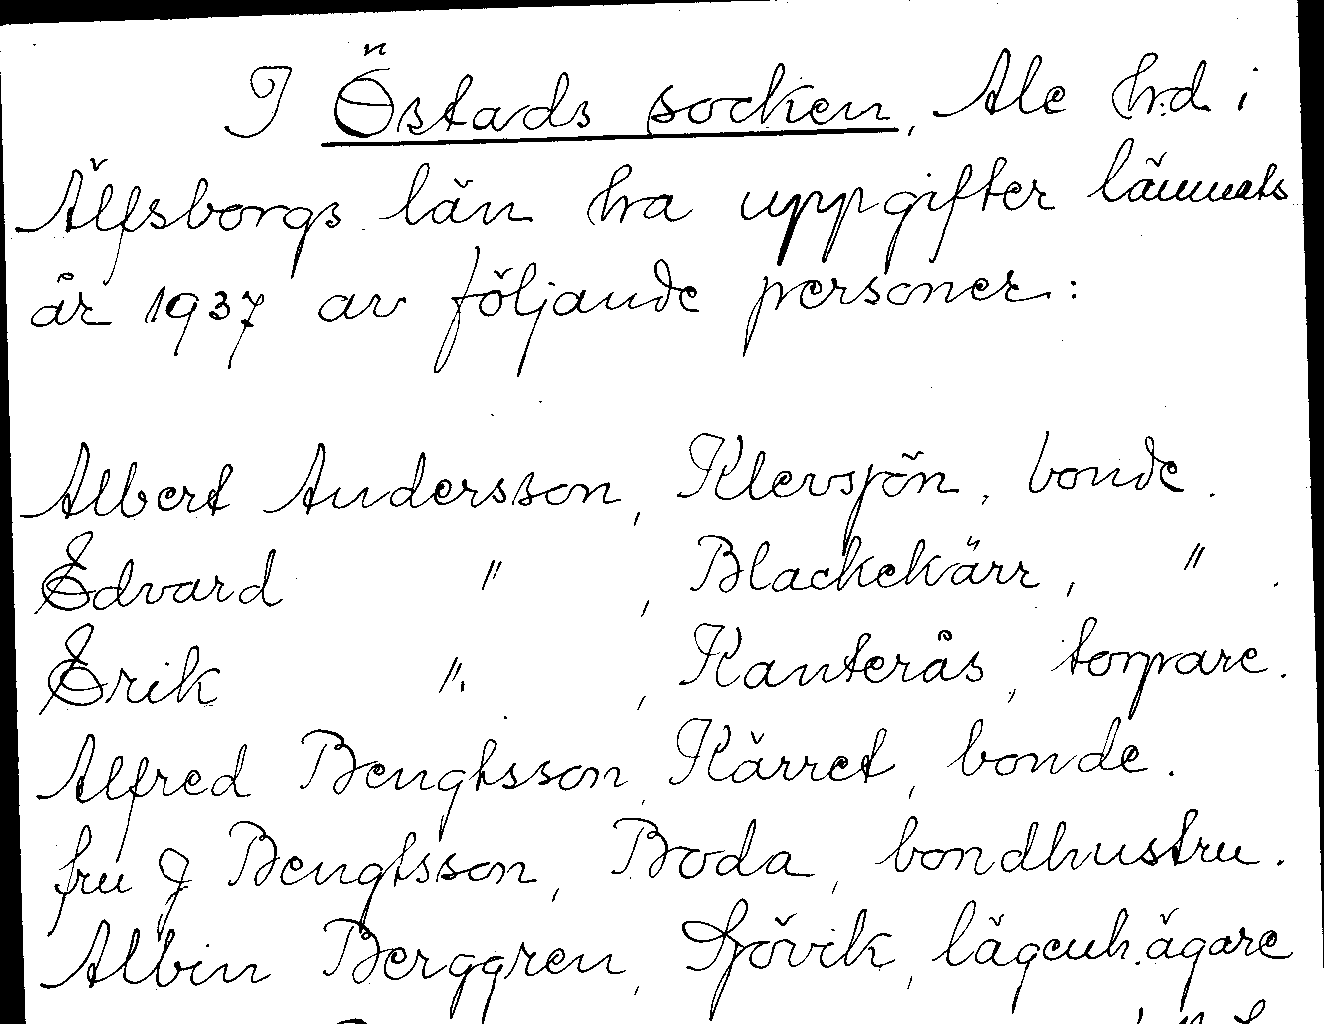 I Östads socken, Ale h:d i
Älfsborgs län ha uppgifter lämnats
år 1937 av följande personer:
Albert Andersson, Klevsjön, bonde.
Edvard ", Blackekärr, ".
Erik ", Kanterås, torpare.
Alfred Bengtsson, Kärret, bonde.
fru J Bengtsson, Boda, bondhustru.
Albin Berggren, Sjövik, lägenh.ägare